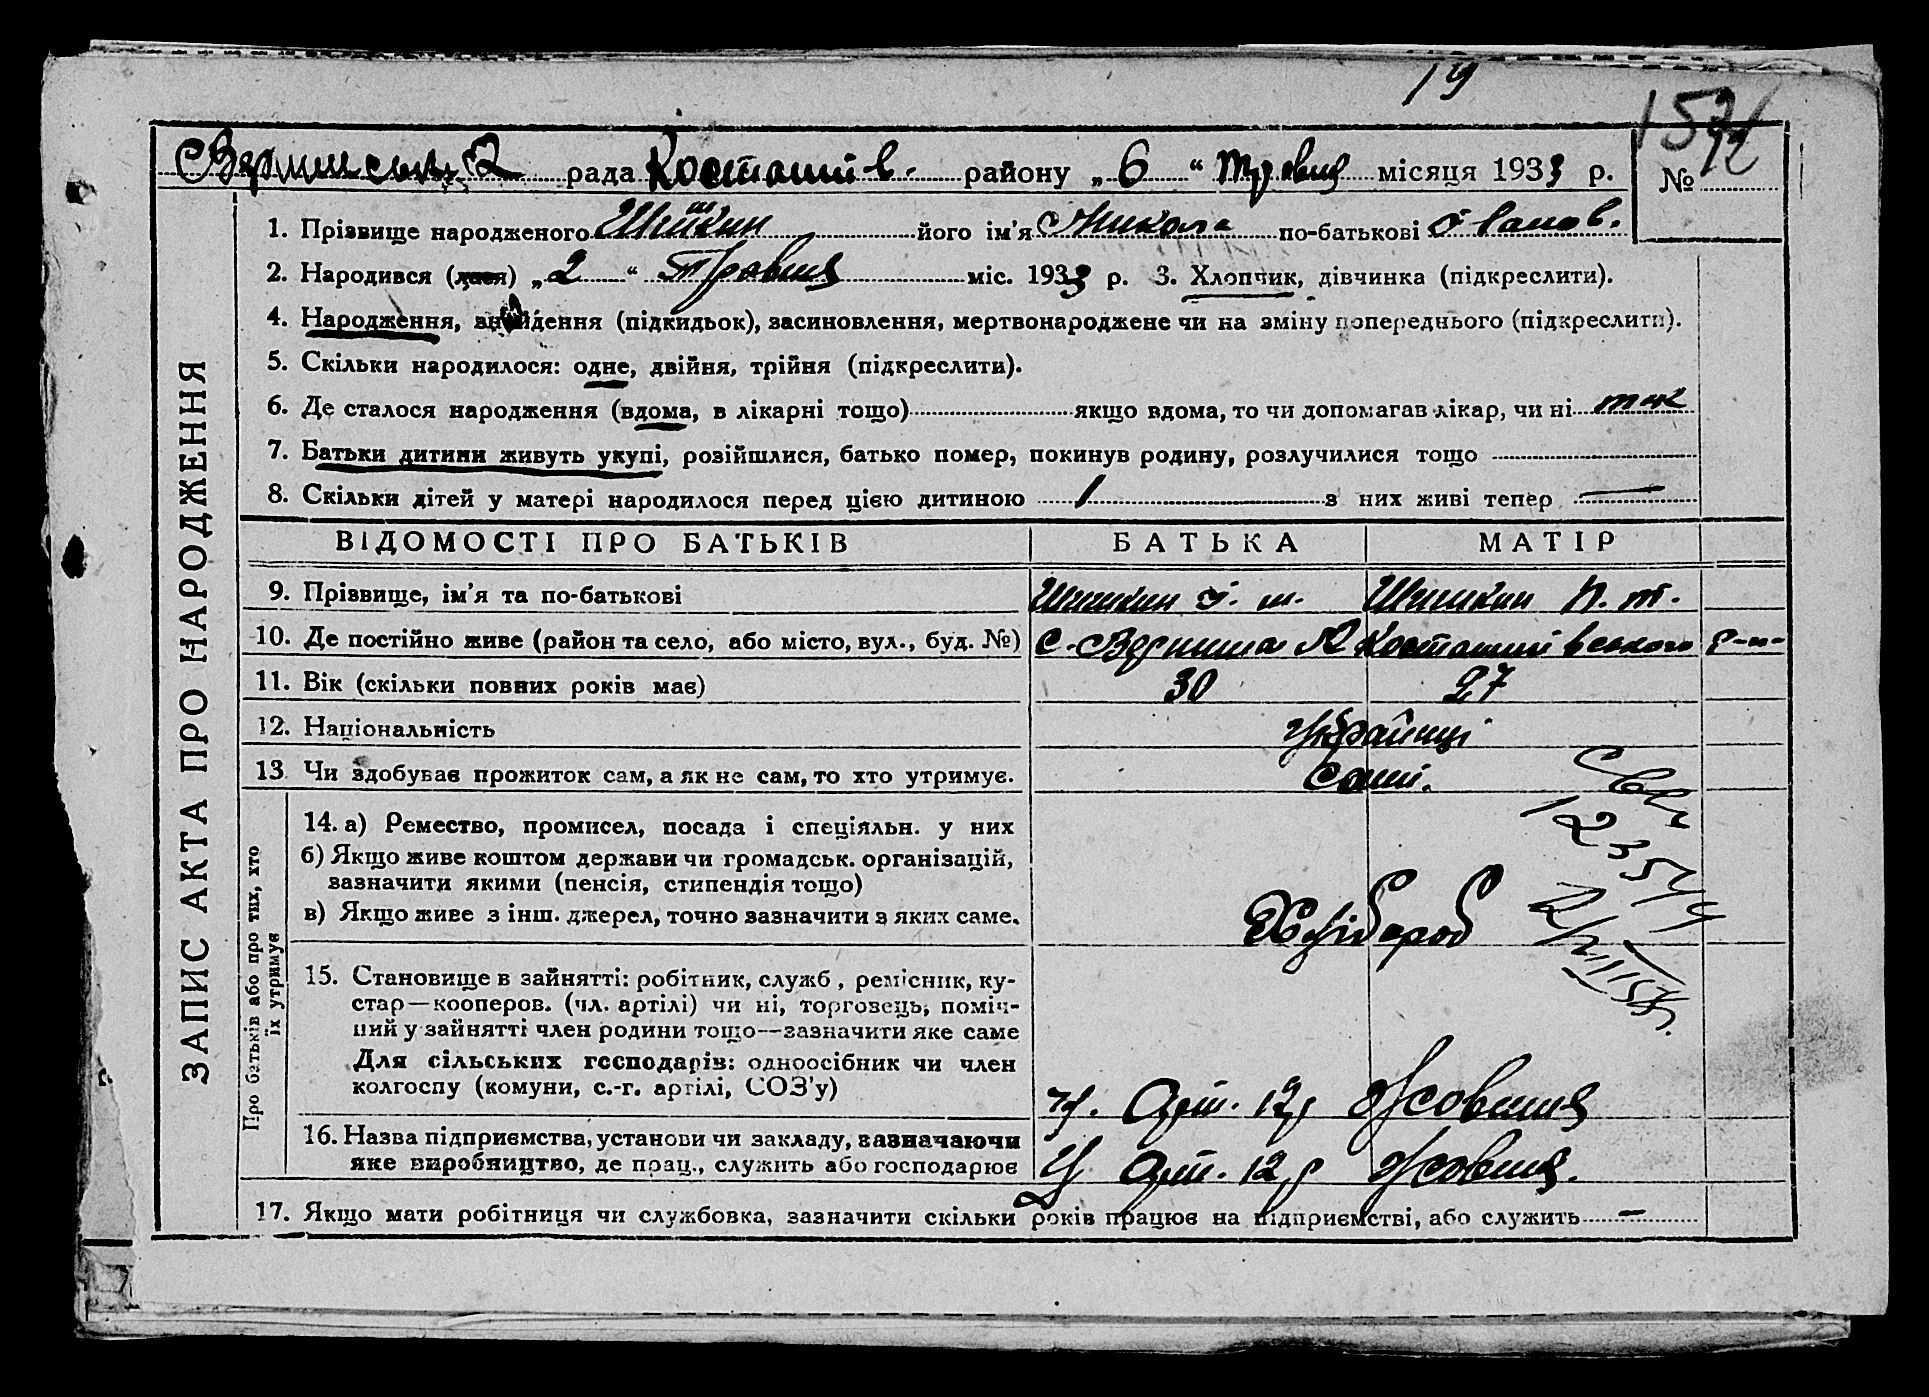 19
1572
рада Косташів. району „ 6 “ травня місяця 1933 р. № 12
1. Прізвище народженого Шишкин його ім'я Микола по-батькові Іванов.
2. Народився (лася) „ 2 “ травня міс. 1933 р. 3. Хлопчик, дівчинка (підкреслити).
4. Народження, знайдення (підкидьок), засиновлення, мертвонароджене чи на зміну попереднього (підкреслити).
5. Скільки народилося: одне, двійня, трійня (підкреслити).
6. Де сталося народження (вдома, в лікарні тощо) якщо вдома, то чи допомагав лікар, чи ні так
7. Батьки дитини живуть укупі, розійшлися, батько помер, покинув родину, розлучилися тощо
8. Скільки дітей у матері народилося перед цією дитиною 1 з них живі тепер —
ЗАПИС АКТА ПРО НАРОДЖЕННЯ
ВІДОМОСТІ ПРО БАТЬКІВ БАТЬКА МАТІР
9. Прізвище, ім'я та по-батькові Шишкин І. Шишкин П. Т.
10. Де постійно живе (район та село, або місто, вул., буд. №) с. 2 Косташівського р-н-
11. Вік (скільки повних років має) 30 27
12. Національність Українці
13. Чи здобував прожиток сам, а як не сам, то хто утримує. Самі.
Про батьків або про тих, хто
їх утримує
14. а) Ремество, промисел, посада і спеціяльн. у них
б) Якщо живе коштом держави чи громадськ. організацій,
зазначити якими (пенсія, стипендія тощо)
в) Якщо живе з інш. джерел, точно зазначити з яких саме.
Хлібороб
15. Становище в зайнятті: робітник, служб, ремісник, ку-
стар—кооперов. (чл. артілі) чи ні, торговець, поміч-
ний у зайнятті член родини тощо—зазначити яке саме
Для сільських господарів: одноосібник чи член
колгоспу (комуни, с.-г. артілі, СОЗ'у)
чл. Арт. 12 р Жовтня
16. Назва підприємства, установи чи закладу, зазначаючи
яке виробництво, де прац., служить або господарює
У Арт. 12 р Жовтня.
17. Якщо мати робітниця чи службовка, зазначити скільки років працює на підприємстві, або служить —